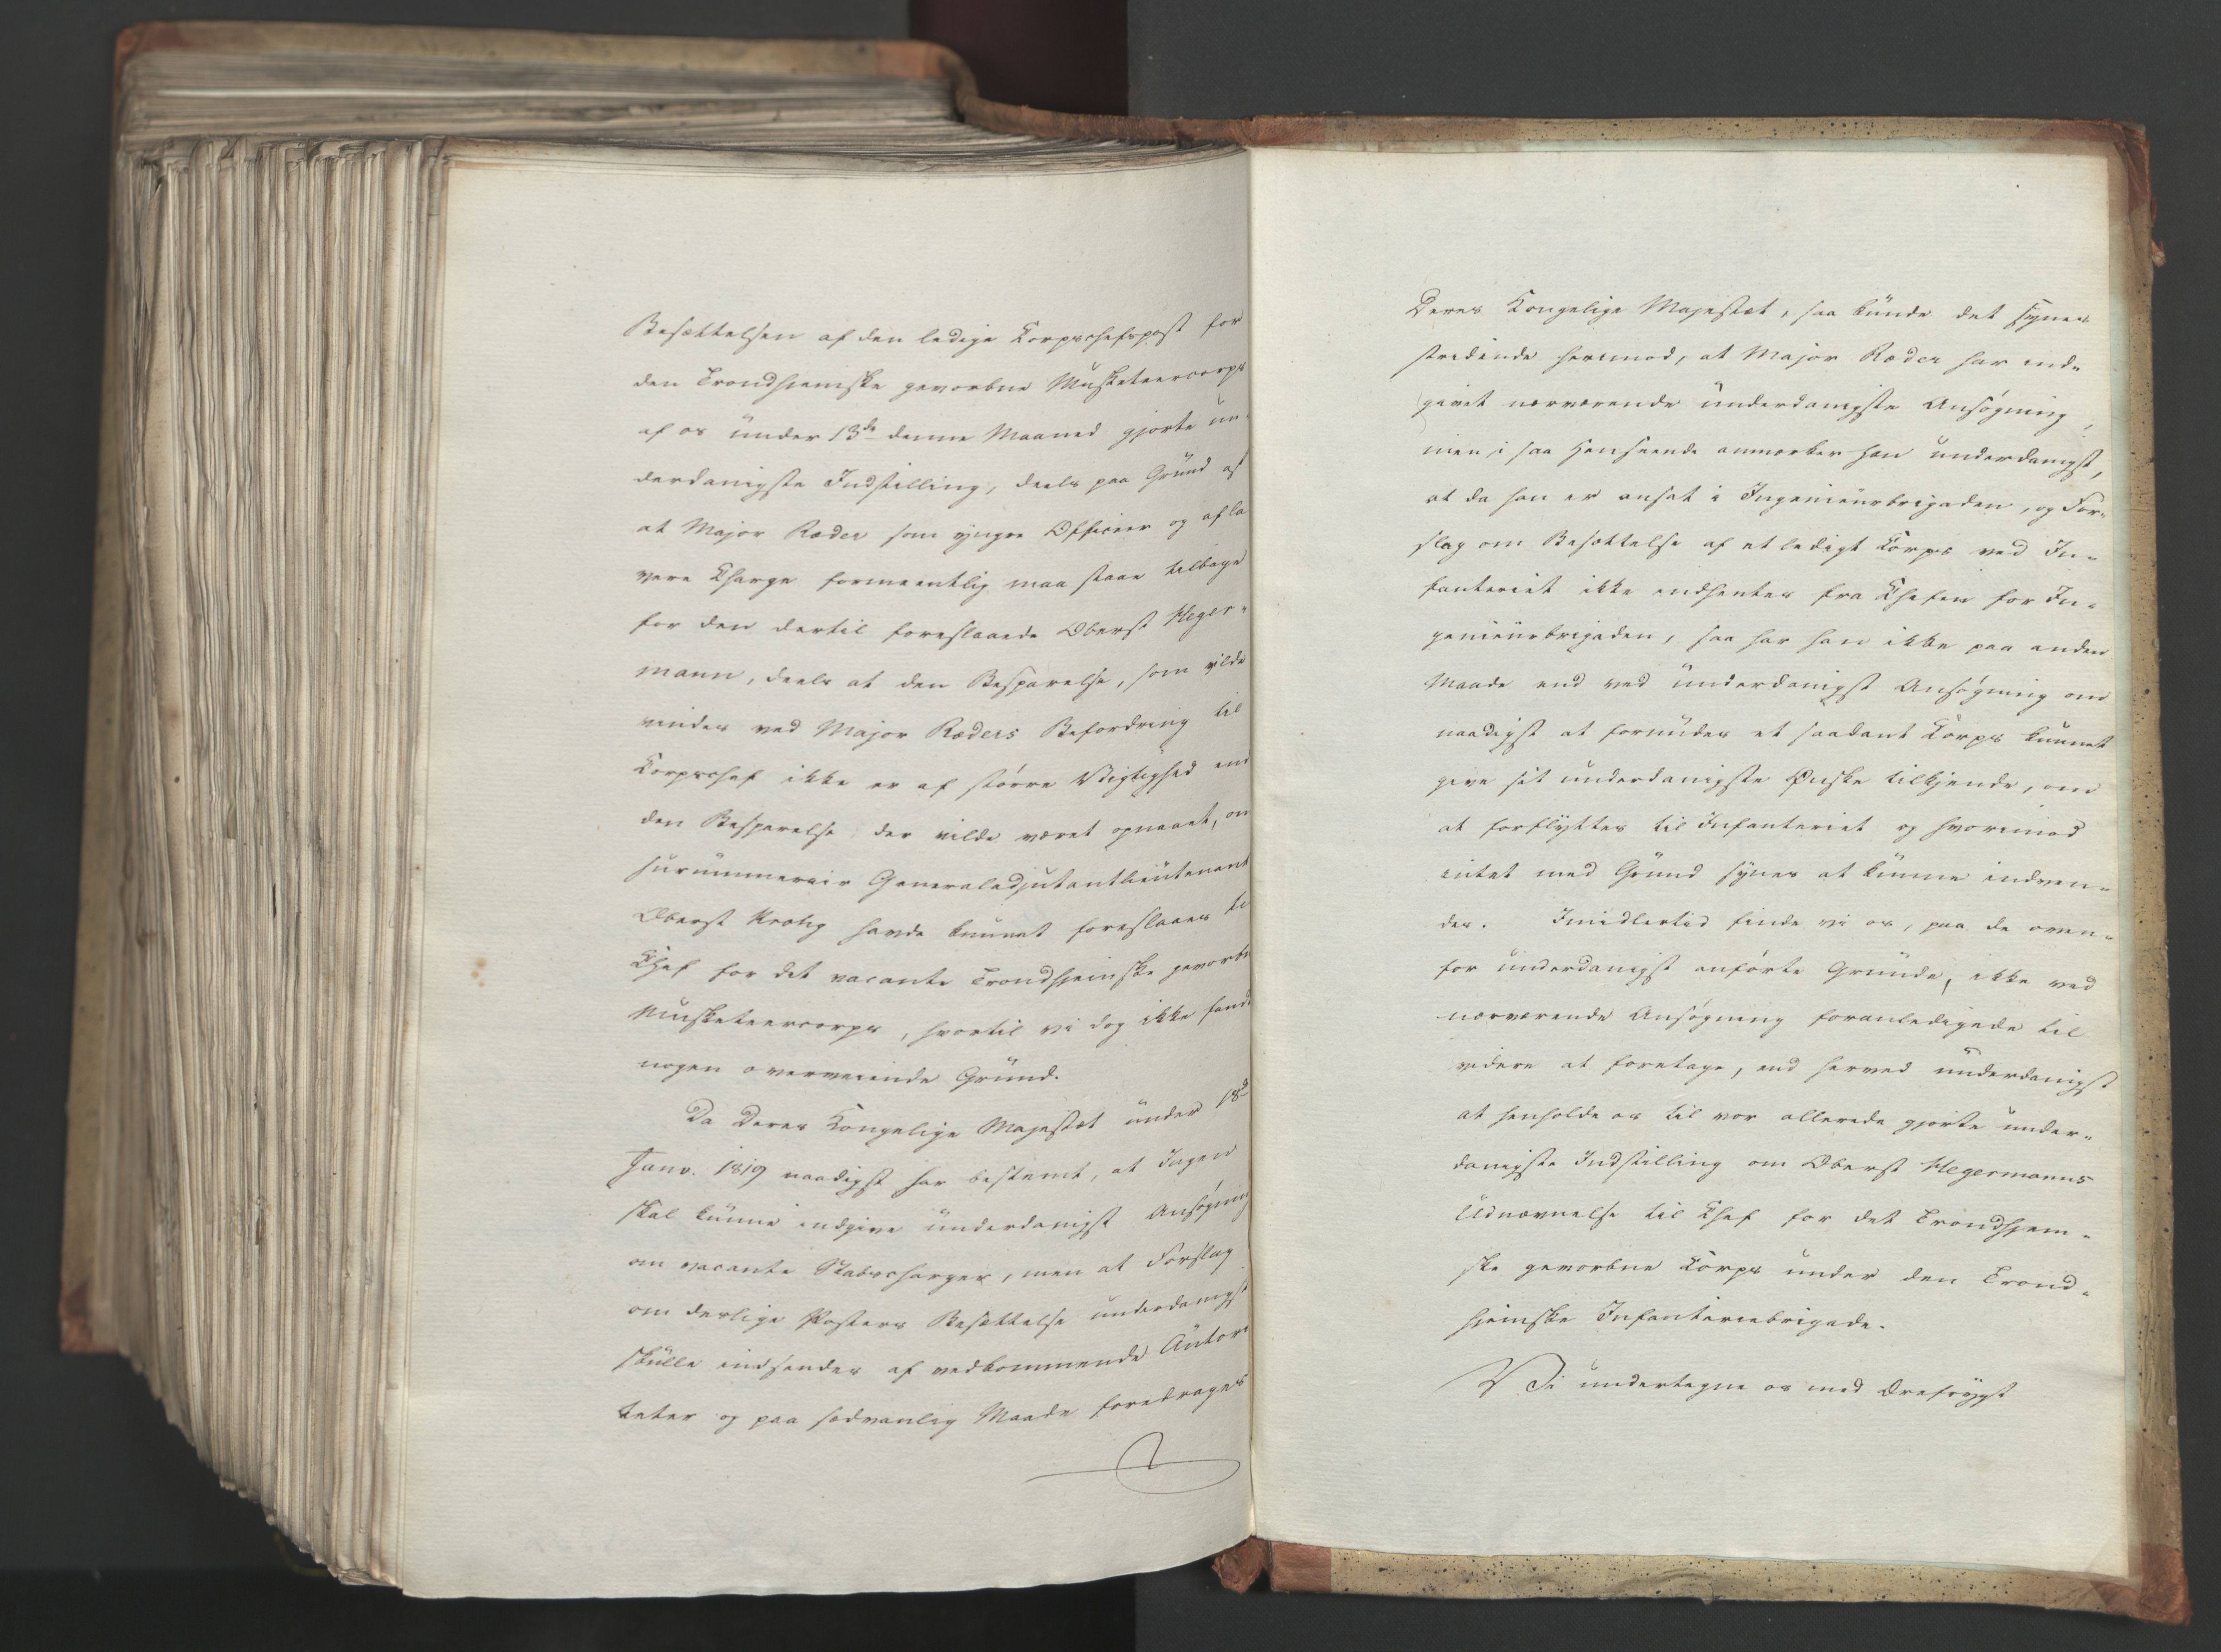 Besættelsen af den ledige Korpschefspost for
den Trondhjemske gevorbne Musketeercorps
af os under 13de denne Maaned gjorte un-
derdanigste Indstilling, deels paa Grund af
at Major Ræder som yngre Officier og af la
vere Charge formeentlig maa staae tilbage
for den dertil foreslaaede Oberst Heger-
mann, deels at den Besparelse, som vilde
vindes ved Major Ræders Befordring til
Korpschef ikke er af större Vigtighed end
den Besparelse der vilde været opnaaet, om
surnummerair Generaladjutantlieutenant
Oberst Krohg havde kunnet foreslaaes til
Chef for det vacante Trondhjemske gevorbne
Musketeercorps, hvortil vi dog ikke fandt
nogen overveiende Grund.
Da Deres Kongelige Majestæt under 18d
Janv. 1819 naadigst har bestemt, at Ingen
skal kunne indgive underdanigst Ansøgning
om vacante Stabscharger, men at Forslag
om deslige Posters Besættelse underdanigst
skulle indsendes af vedkommende Autori
teter og paa sædvanlig Maade foredrages
Deres Kongelige Majestæt, saa kunde det synes
stridende herimod, at Major Ræder har ind-
givet nærværende underdanigste Ansøgning,
men i saa Henseende anmærker han underdanigst,
at da han er ansat i Ingenieurbrigaden, og For-
slag om Besættelse af et ledigt Korps ved In-
fanteriet ikke indhentes fra Chefen for In-
genieurbrigaden, saa har han ikke paa anden
Maade end ved underdanigst Ansøgning om
naadigst at forundes et saadant Korps kunnet
give sit underdanigste Ønske tilkjende, om
at forflyttes til Infanteriet og hvorimod
intet med Grund synes at kunne indven-
des. Imidlertid finde vi os, paa de oven-
for underdanigst anførte Grunde, ikke ved
nærværende Ansøgning foranledigede til
videre at foretage, end herved underdanigst
at henholde os til vor allerede gjorte under-
danigste Indstilling om Oberst Hegermanns
Udnævnelse til Chef for det Trondhjem-
ske gevorbne Korps under den Trond-
hjemske Infanteriebrigade.
Vi undertegne os med Ærefrygt